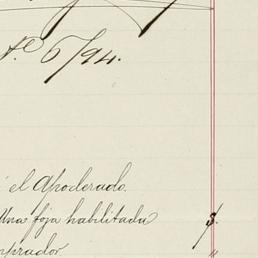 6/94.
el Apoderado.
Una foja habilitada $.
mprador